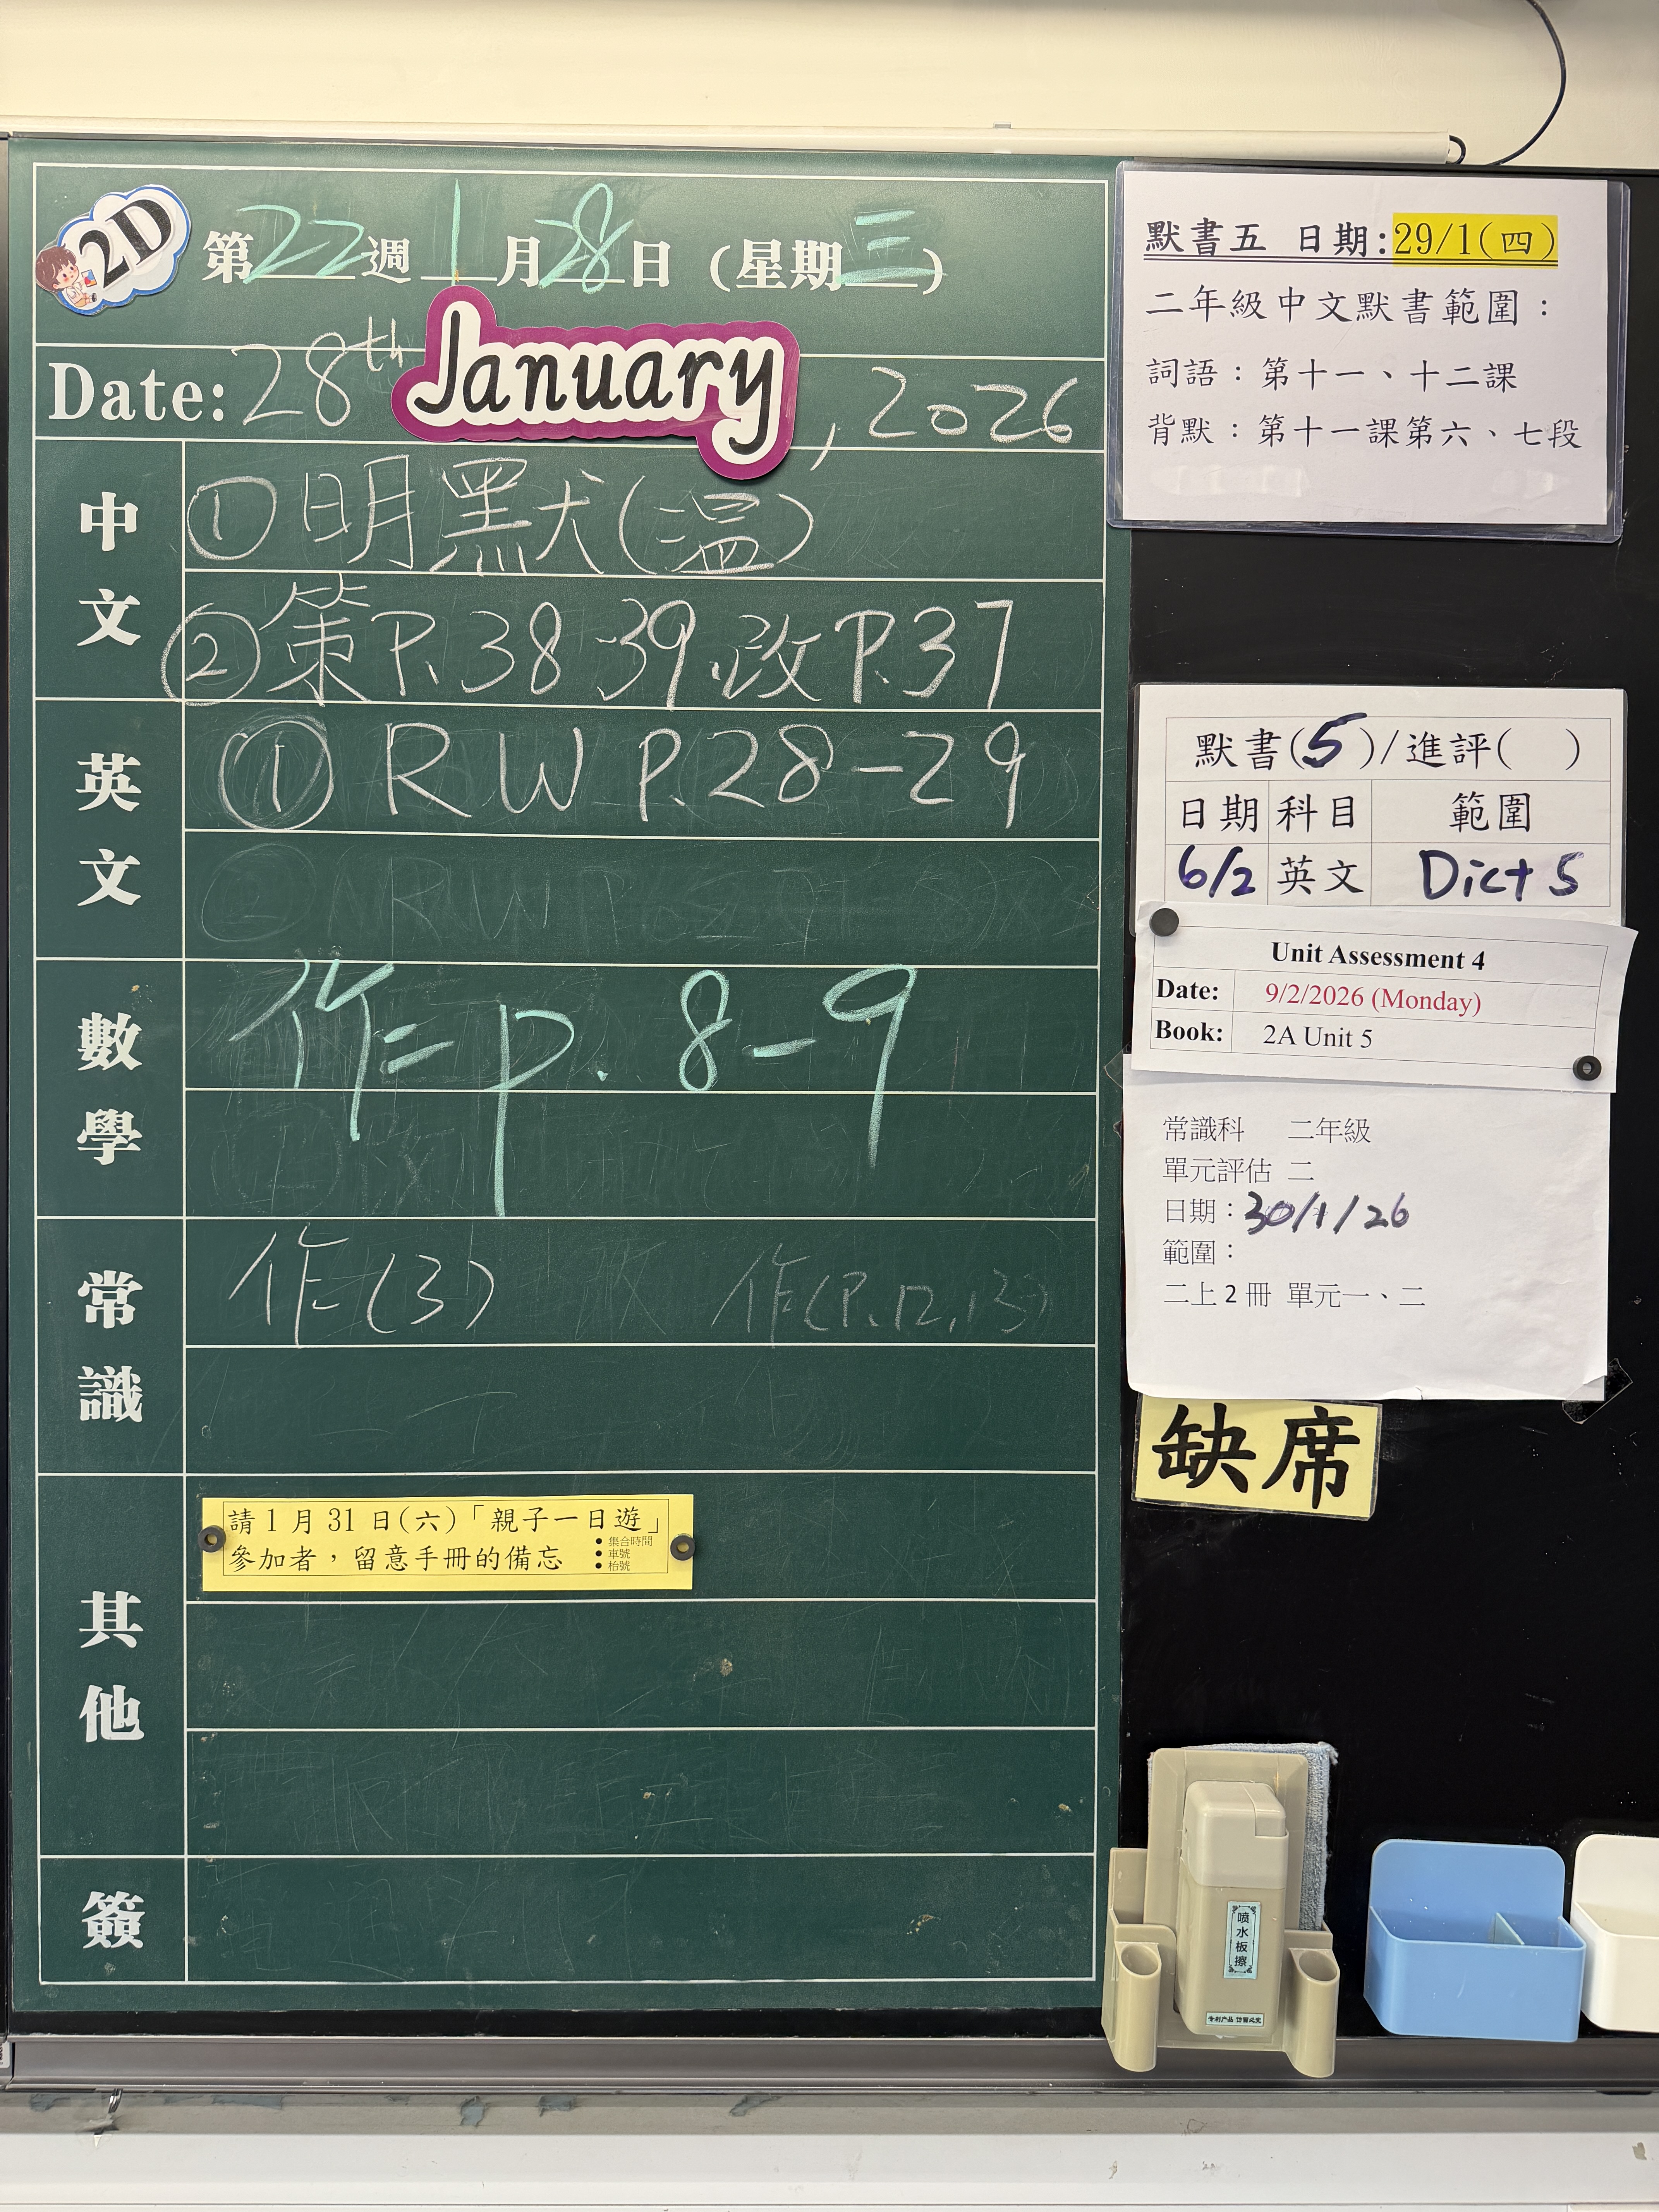 2D
第22週 1月28日 (星期三)
Date: 28th January, 2026
中文
① 明默(温)
② 策P.38-39、改P.37
英文
① RW P.28-29
數學
作=p.8-9
常識
作(3) 改 作(P.12,13)
其他
請1月31日(六)「親子一日遊」
參加者，留意手冊的備忘
● 集合時間
● 車號
● 枱號
簽
默書五 日期:29/1(四)
二年級中文默書範圍：
詞語：第十一、十二課
背默：第十一課第六、七段
默書(5)/進評( )
日期 科目 範圍
6/2 英文 Dict 5
Unit Assessment 4
Date: 9/2/2026 (Monday)
Book: 2A Unit 5
常識科 二年級
單元評估 二
日期：30/1/26
範圍：
二上2冊 單元一、二
缺席
喷水板擦